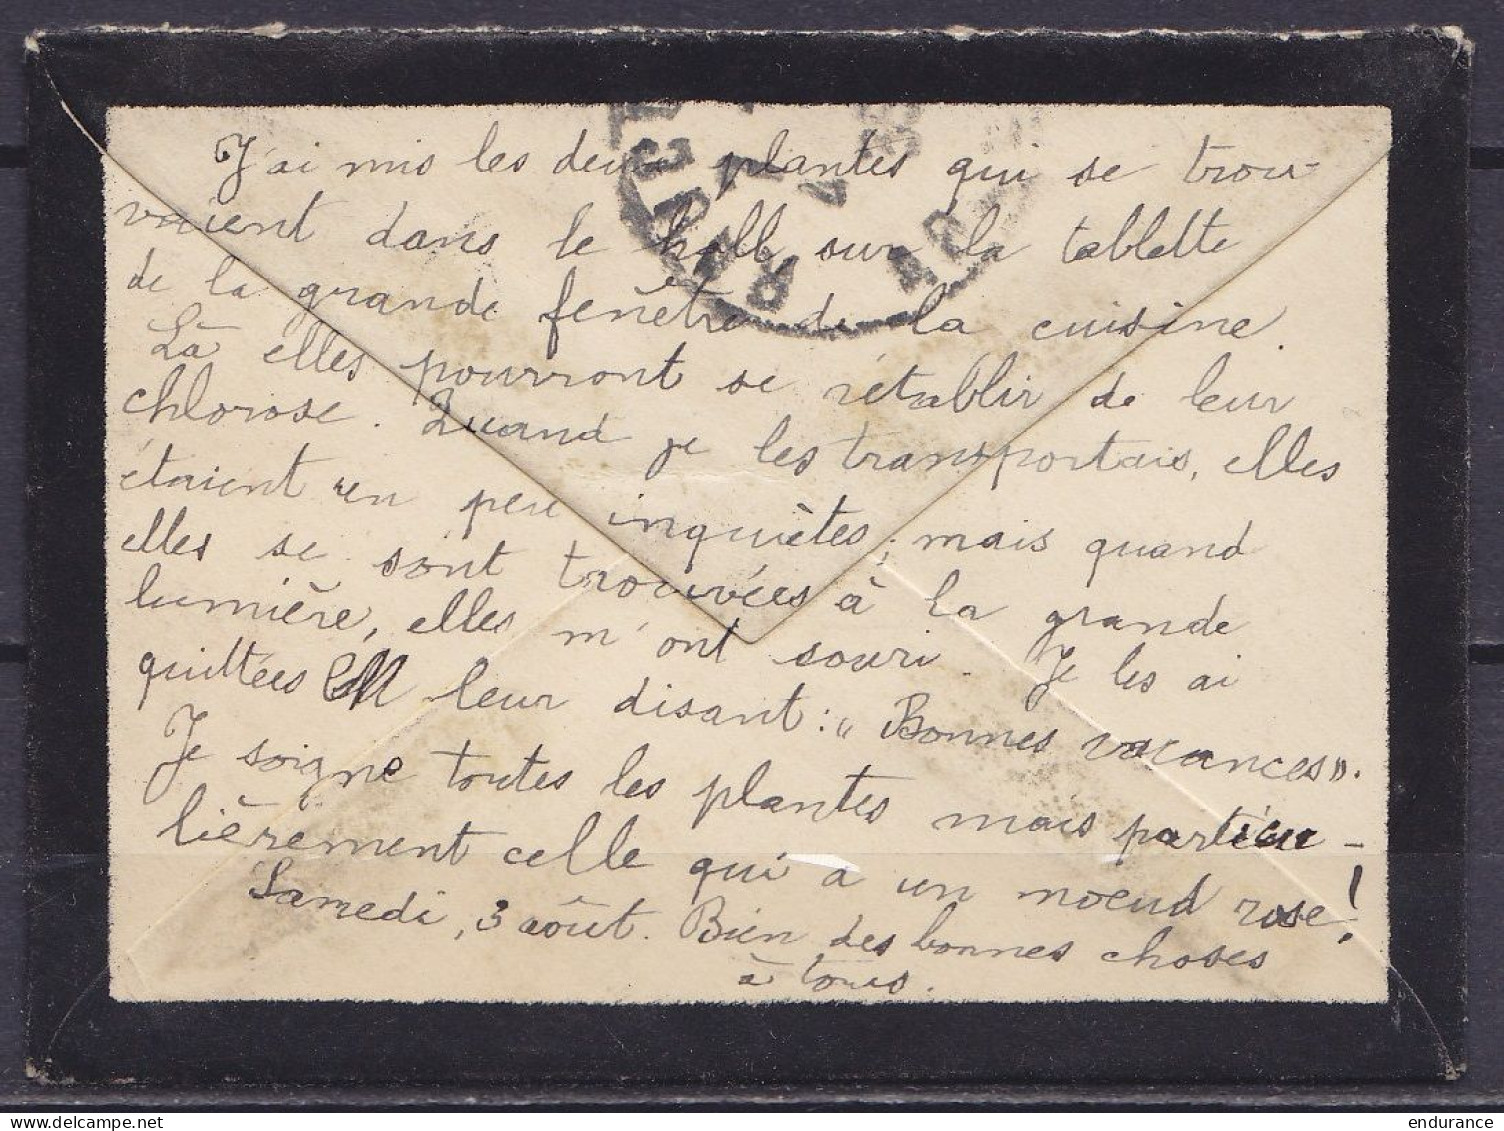 J'ai mis les deux plantes qui se trou-
vaient dans le hall, sur la tablette
de la grande fenêtre de la cuisine.
Là elles pourront se rétablir de leur
chlorose. Quand je les transportais, elles
étaient un peu inquiètes; mais quand
elles se sont trouvées à la grande
lumière, elles m'ont souri. Je les ai
quittées en leur disant: "Bonnes vacances".
Je soigne toutes les plantes mais particu-
lièrement celle qui a un noeud rose!
Samedi, 3 août. Bien des bonnes choses
à tous.
endurance